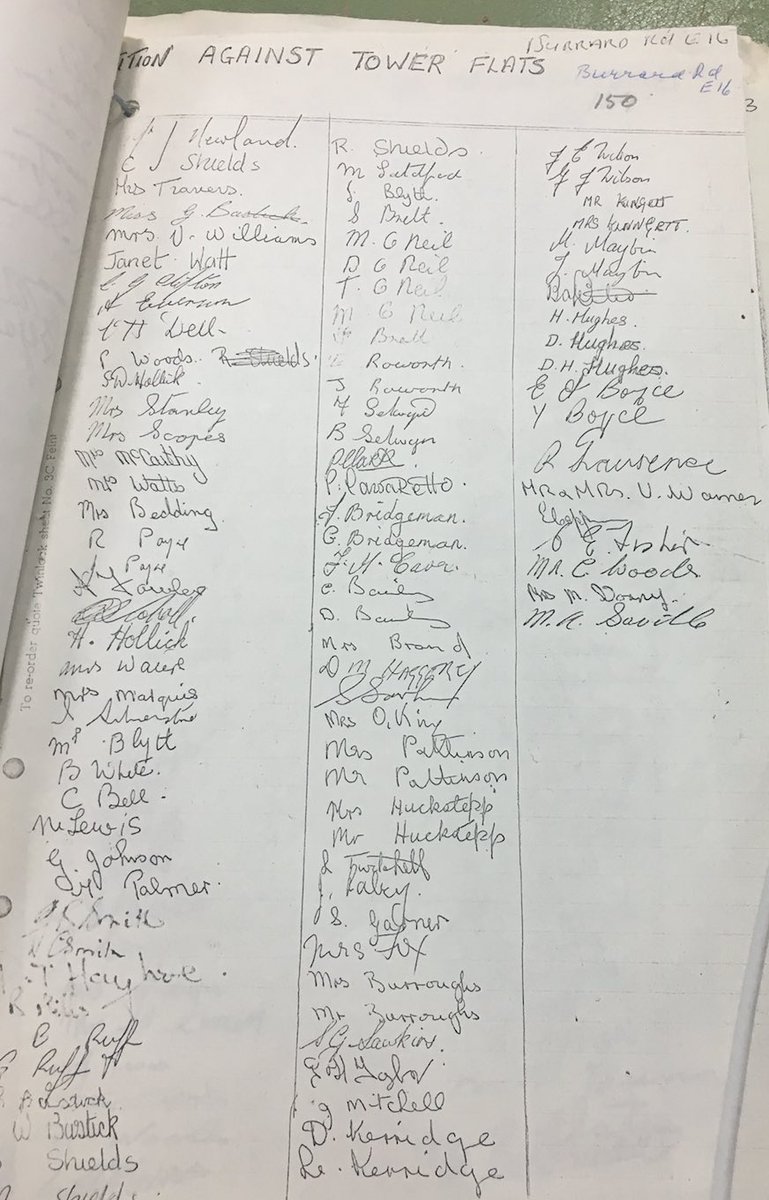 TION AGAINST TOWER FLATS
BURRARD Rd E16
Burrard Rd
E16
150
3
J Newland.
C J Shields
Mrs Travers.
Miss G. Bastick
Mrs V. Williams
Janet Watt
Clifton
A Emerson
Dell
P Woods. R Shields.
S.W. Hollick
Mrs Stanley
Mrs Scopes
Mrs McCarthy
Mrs Watts
Mrs Bedding
R Paye
Paye
H. Hollick
Mrs
Mrs Marquis
Mr Blytt
B White.
C Bell.
M Lewis
G. Johnson
Palmer.
Smith
Smith
T Hay
R
B Ruff
Ruff
Bastick
W Bustick
Shields
Shields.
R. Shields.
M
J. Blyth.
S Britt.
M. O Neil
D O Neil
T. O Neil
M O Neil
Bratt
Roworth.
J Roworth
Selwyn
B Selwyn
P.
J. Bridgeman.
G. Bridgeman.
F. H. Caver.
E. Bailey
D. Bailey
Mrs Brand
D M HAGGERTY
Mrs O. King
Mrs Pattinson
Mr Pattinson
Mrs Huckstepp
Mr Huckstepp
J Twitchett
J.
S. Gardner
Mrs Fox
Mrs Burroughs
Mr Burroughs
S G
g Mitchell
D. Kerridge
Re. Kerridge
J E Wilson
G J Wilson
MR KINGETT
MRS KINNGETT.
M. Maybin
J. Maybin
H. Hughes.
D. Hughes.
D.H. Hughes.
E J Boyce
Y Boyce
R Lawrence
MR & MRS. V. Warner
E.
MR. E Woods
Mrs M.
M. A. Saville
To re-order quote Twinlock sheet No. 3C Feint